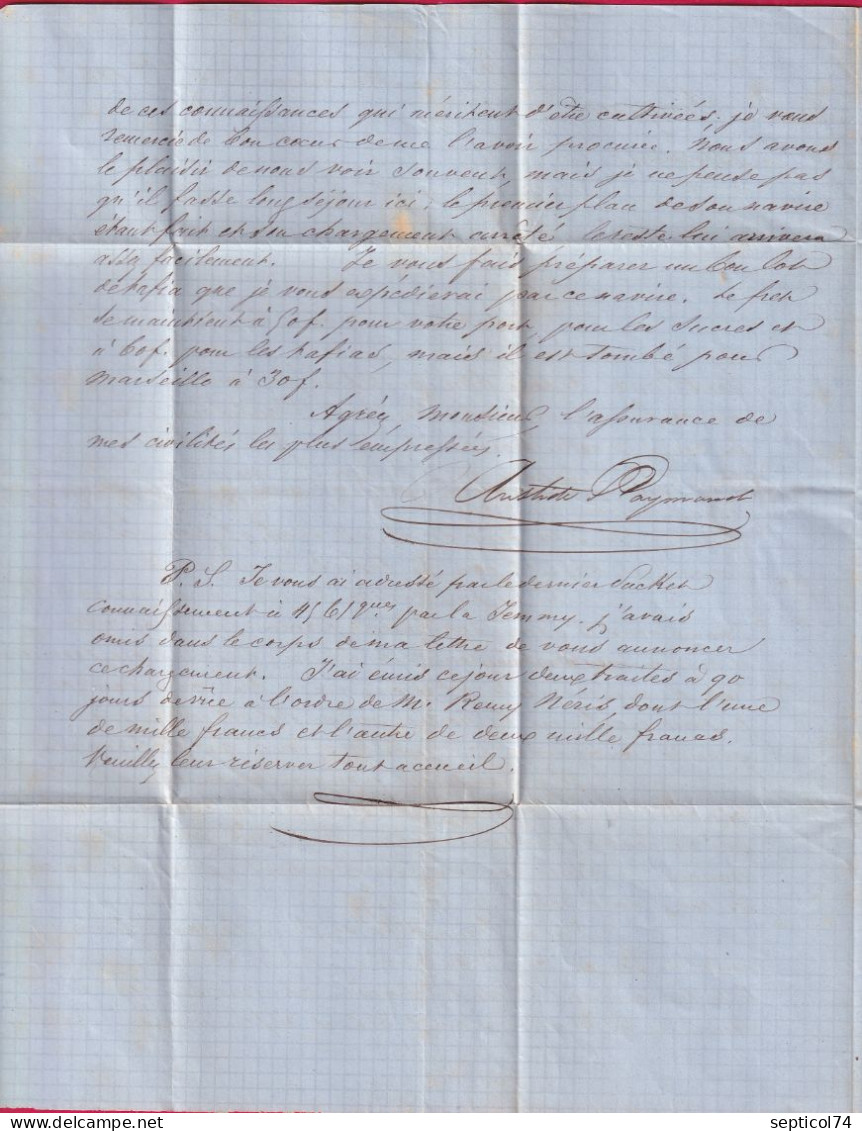 de ces connaissances qui méritent d'être cultivées; je vous
remercie de bon coeur de me l'avoir procurée. Nous avons
le plaisir de nous voir souvent, mais je ne pense pas
qu'il fasse long séjour ici; le premier plan de son navire
étant fait et son chargement arrêté, le reste lui arrivera
assez facilement. Je vous fais préparer un bon lot
de tafia que je vous expédierai par ce navire. Le fret
se maintient à 50f. pour votre port pour les sucres et
à 60f. pour les tafias, mais il est tombé pour
Marseille à 30f.
Agréez, Monsieur, l'assurance de
mes civilités les plus empressées.
Aristide Raymond
P.S. Je vous ai adressé par le dernier Packet
connaissement à par la Jemmy. j'avais
omis dans le corps de ma lettre de vous annoncer
ce chargement. J'ai émis ce jour deux traites à 90
jours de vüe à l'ordre de Mr. Remy Néris dont l'une
de mille francs et l'autre de deux mille francs.
Veuillez leur réserver tout accueil.
septicol74